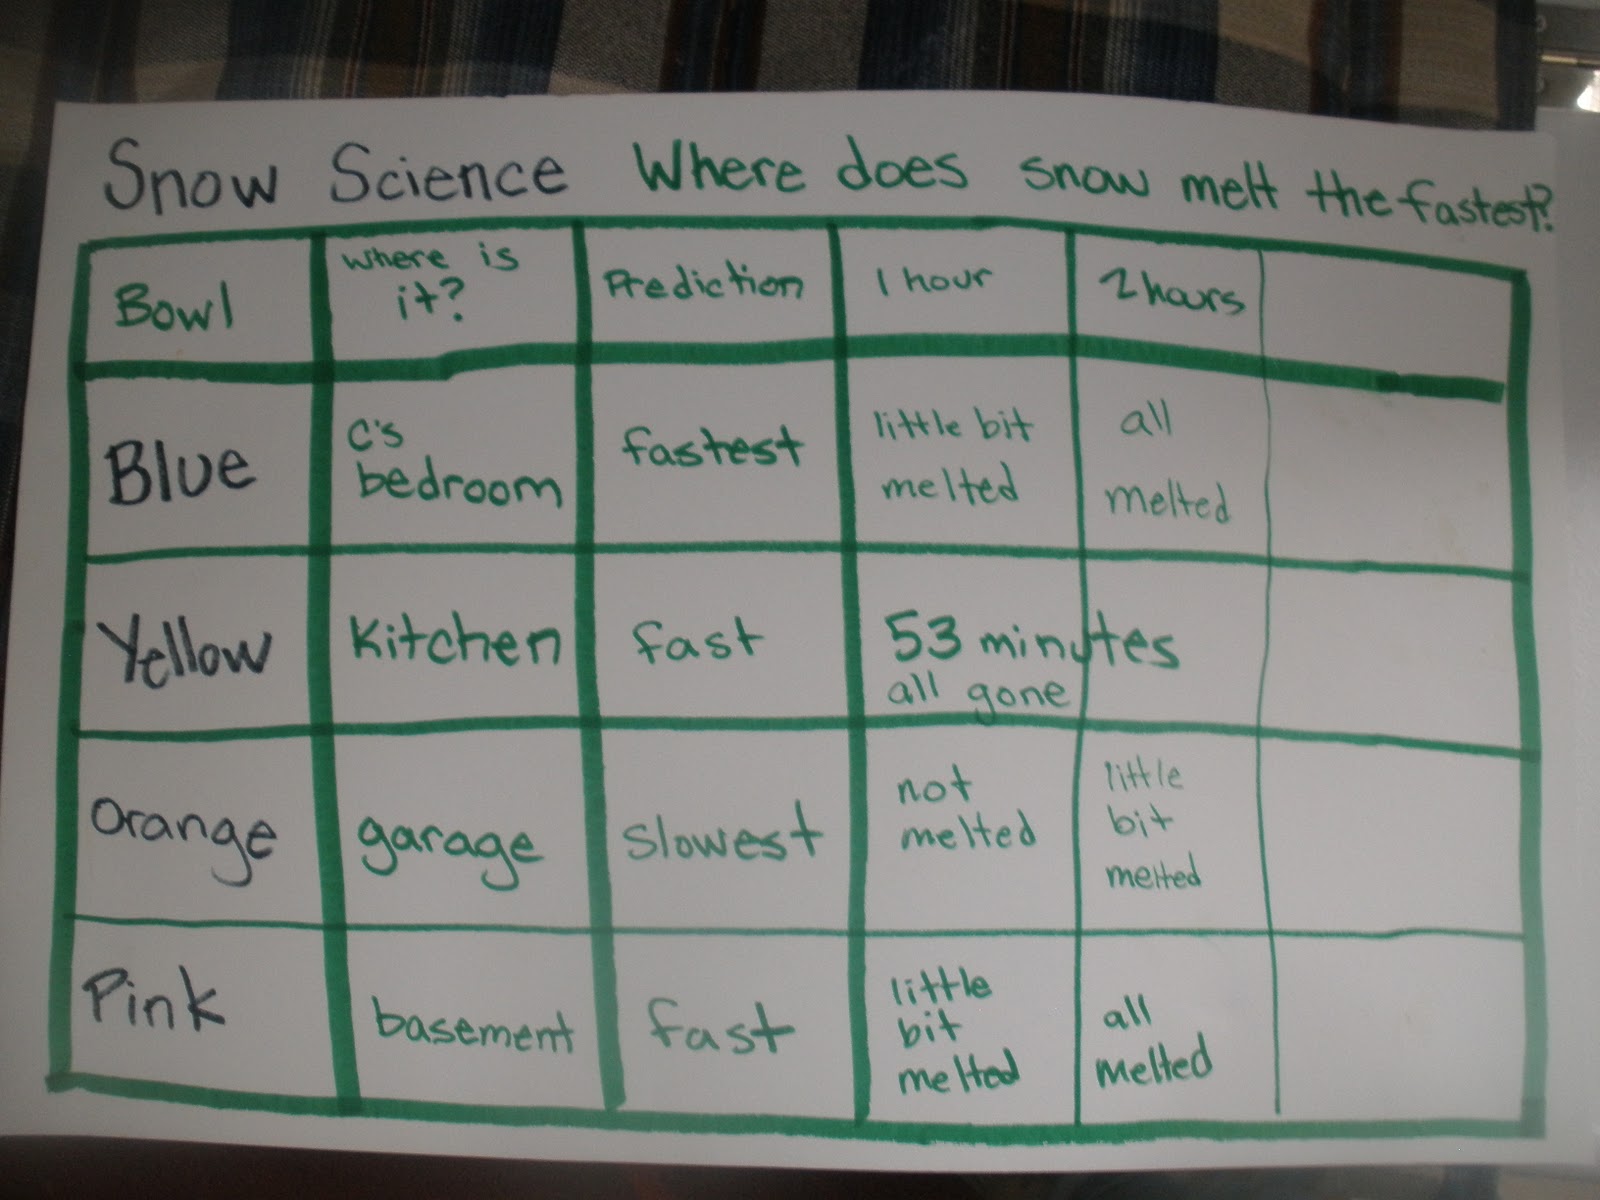 Snow Science Where does snow melt the fastest?
Bowl
where is
it?
Prediction
1 hour
2 hours
Blue
C's
bedroom
fastest
little bit
melted
all
melted
Yellow
Kitchen
fast
53 minutes
all gone
Orange
garage
slowest
not
melted
little
bit
melted
Pink
basement
fast
little
bit
melted
all
melted